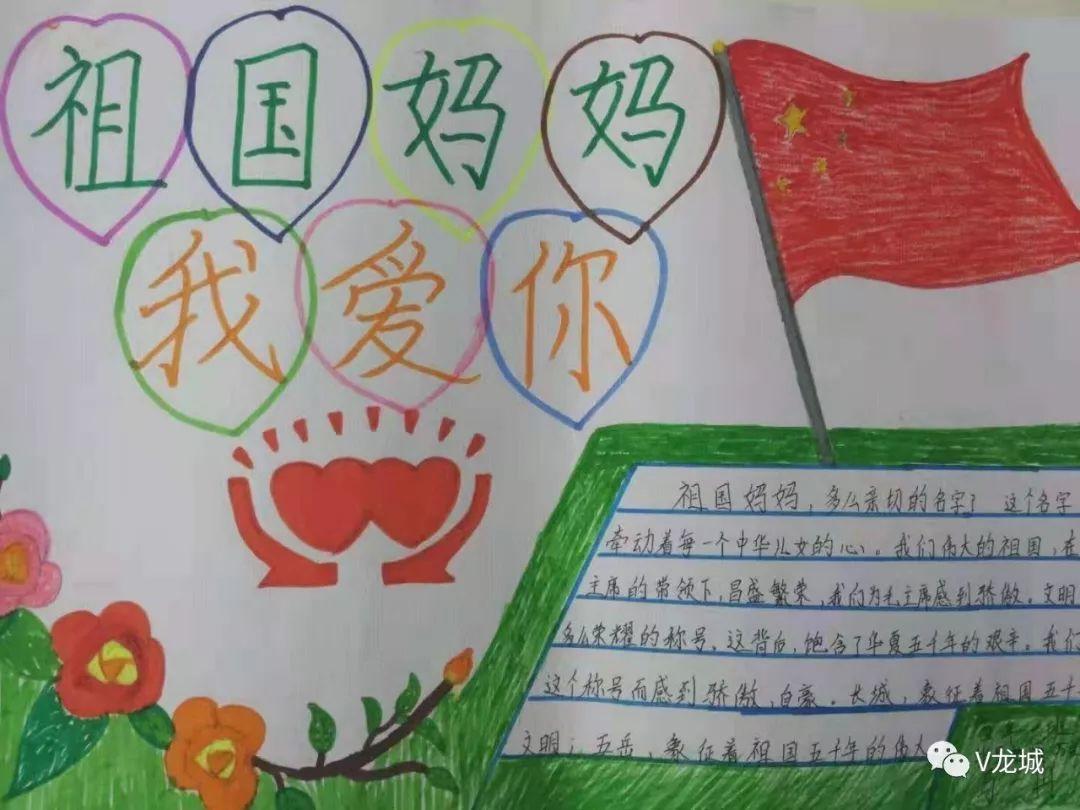 祖国妈妈
我爱你
祖国妈妈，多么亲切的名字！这个名字
牵动着每一个中华儿女的心。我们伟大的祖国，在
主席的带领下，昌盛繁荣，我们为毛主席感到骄傲。文明
多么荣耀的称号。这背后，饱含了华夏五千年的艰辛。我们
这个称号而感到骄傲，自豪。长城，象征着祖国五十
文明；五岳，象征着祖国五十年的伟大
V龙城